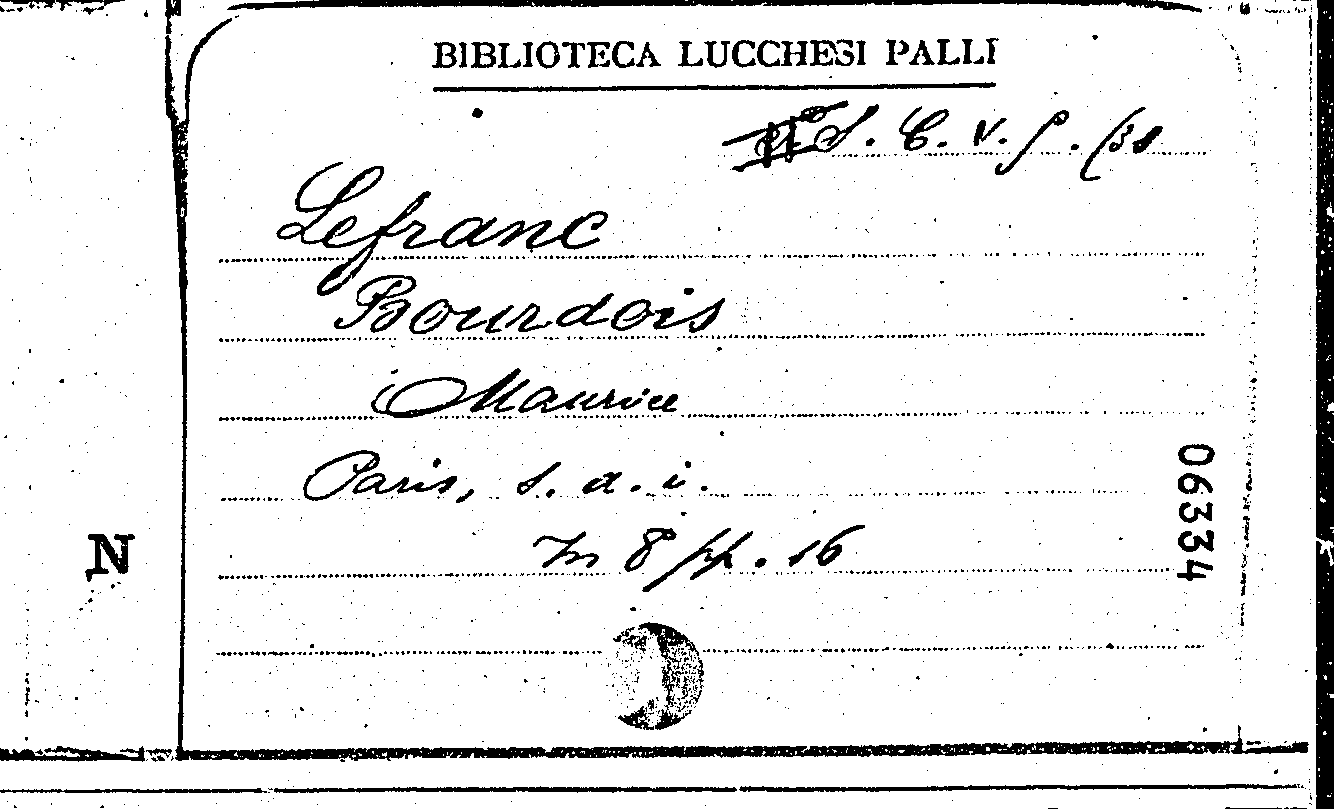 BIBLIOTECA LUCCHESI PALLI
S. C. V. (38
Lefranc
Bourdois
Maurice
Paris, s. a. i.
In 8 pp. 16
06334
N